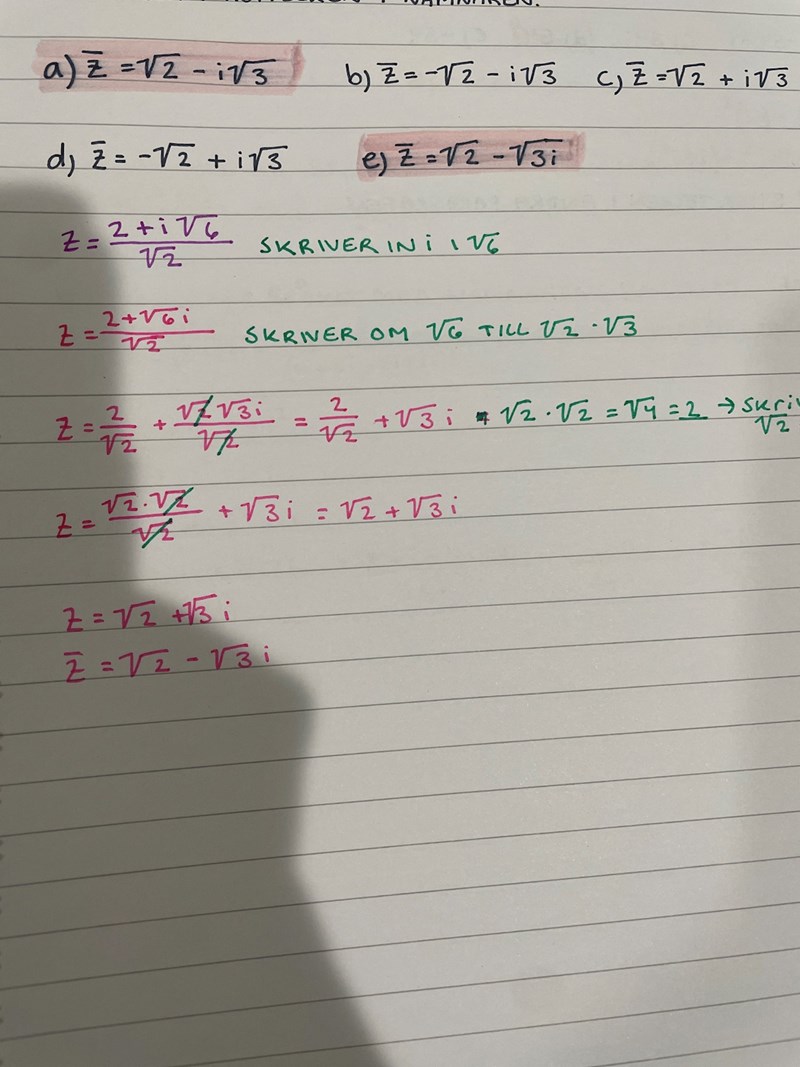 a) z̄ = √2 − i√3 b) z̄ = −√2 − i√3 c) z̄ = √2 + i√3
d) z̄ = −√2 + i√3 e) z̄ = √2 − √3i
z = (2 + i√6)/√2 SKRIVER IN i I √6
z = (2 + √6 i)/√2 SKRIVER OM √6 TILL √2 · √3
z = 2/√2 + √2√3i/√2 = 2/√2 + √3 i √2 · √2 = √4 = 2 → √2
z = √2·√2/√2 + √3 i = √2 + √3 i
z = √2 + √3 i
z̄ = √2 − √3 i